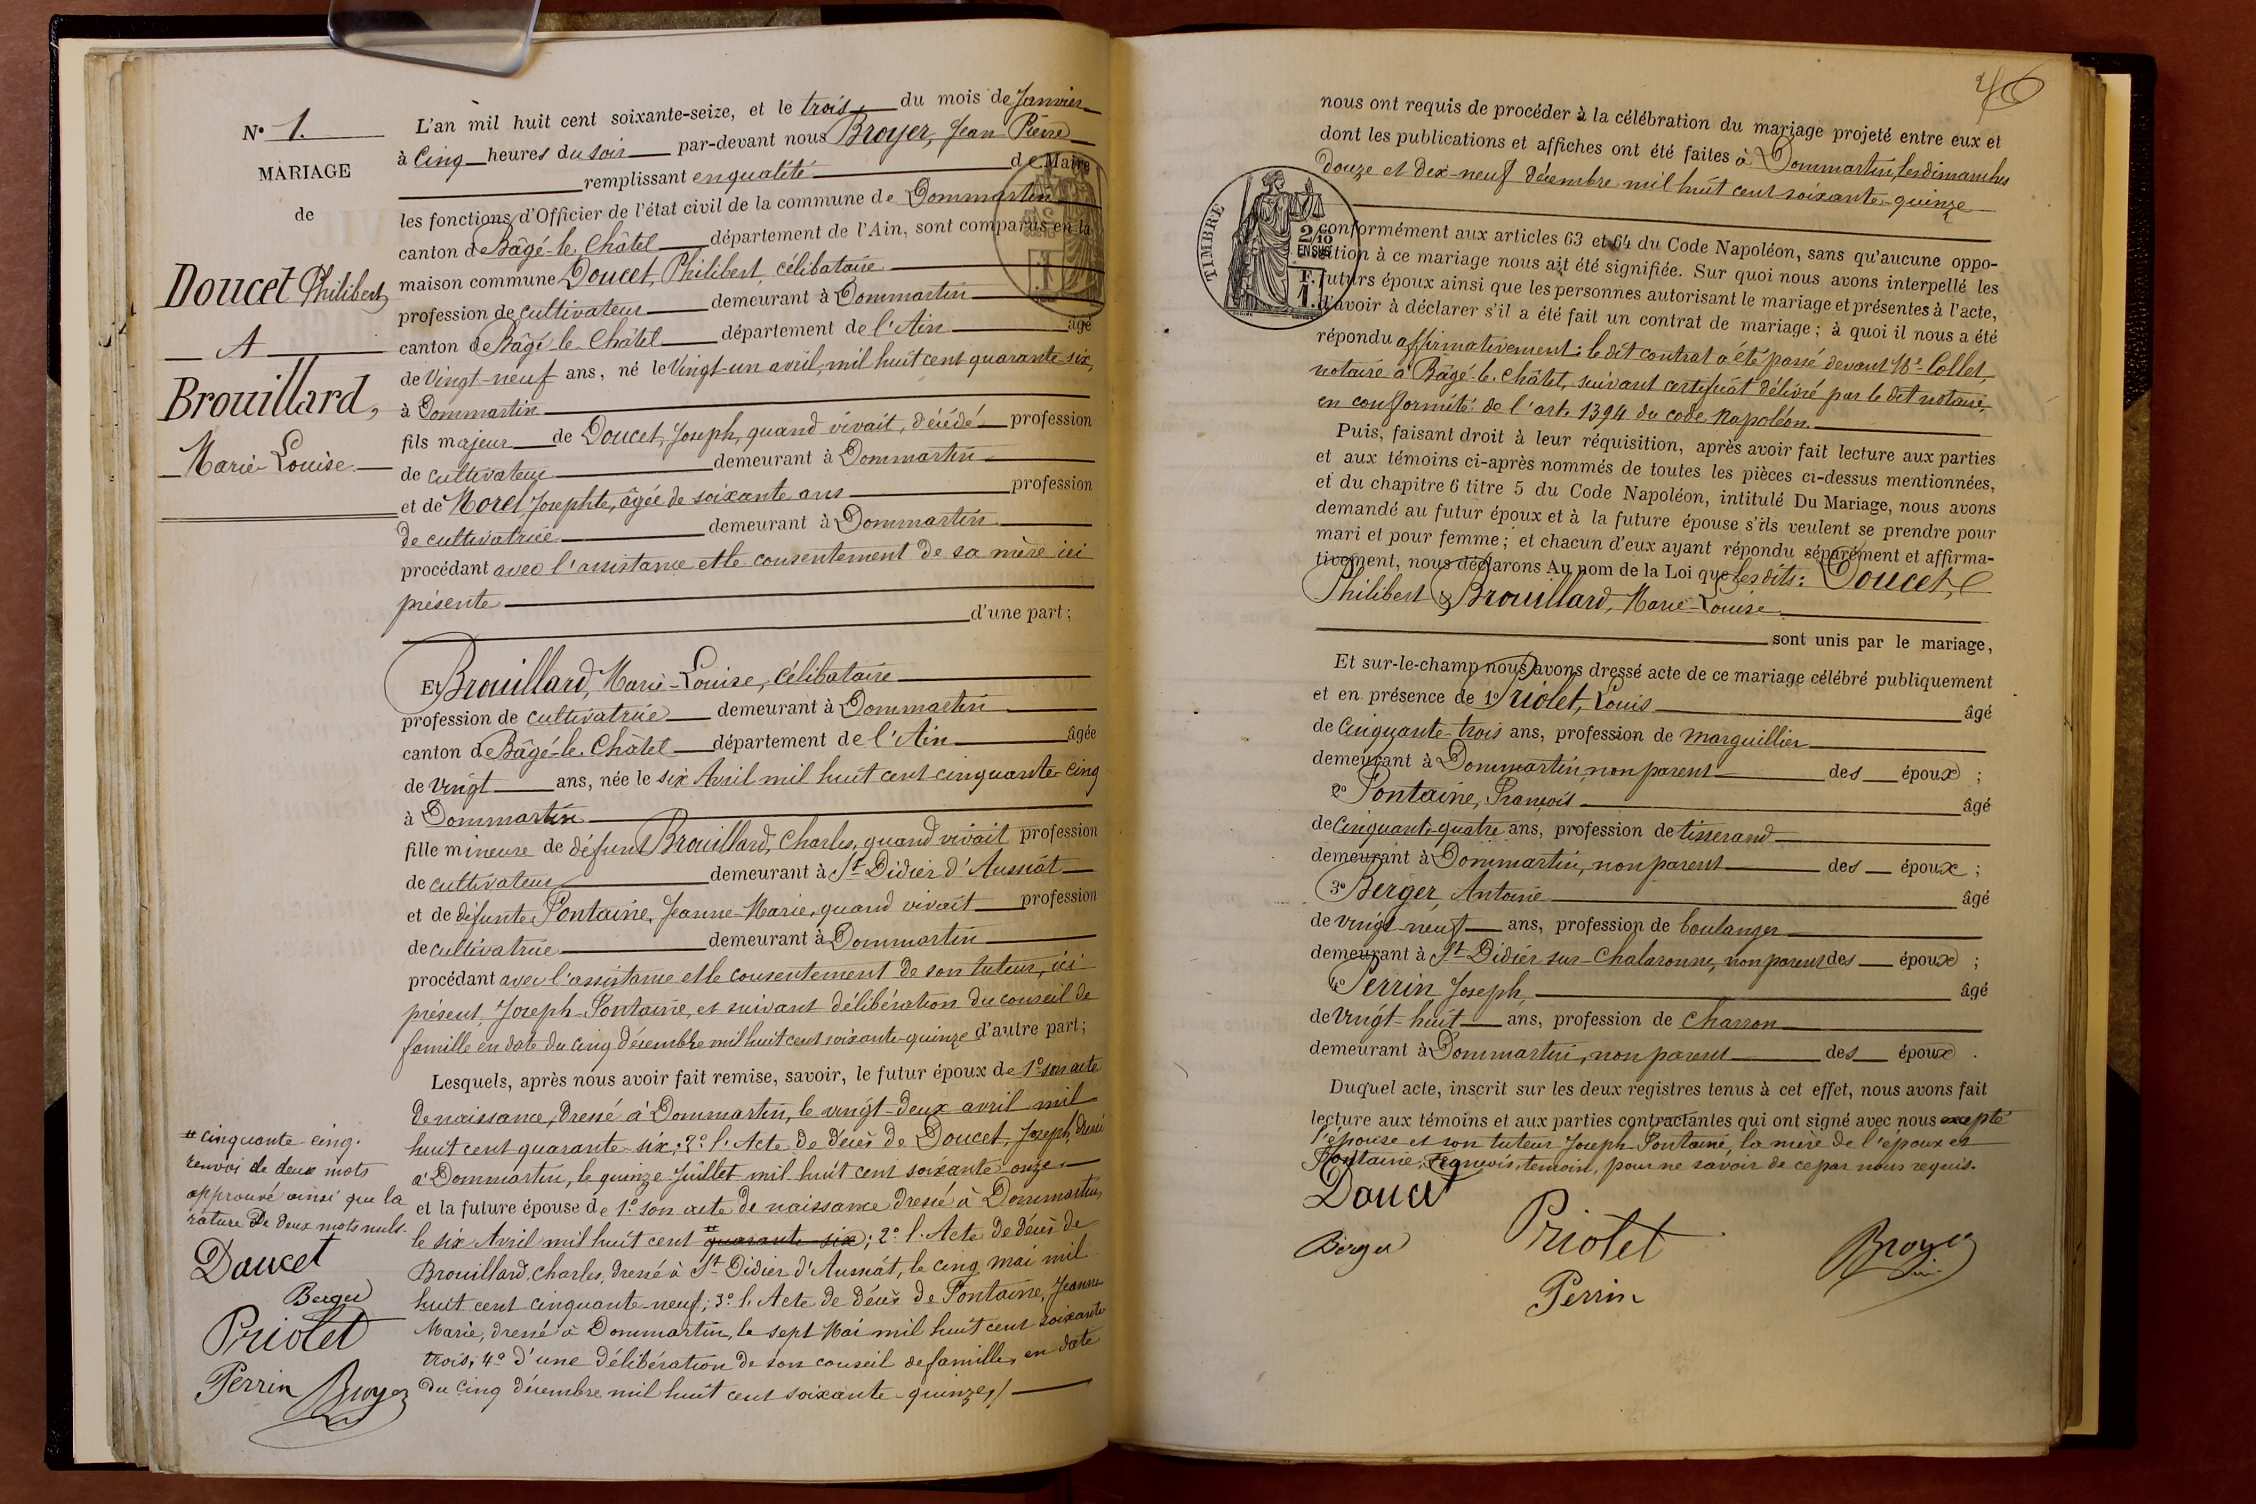 N° 1.
MARIAGE
de
Doucet Philibert
A
Brouillard,
Marie-Louise
L'an mil huit cent soixante-seize, et le trois du mois de Janvier
à Cinq heures du soir par-devant nous Broyer, Jean Pierre
remplissant en qualité de Maire
les fonctions d'Officier de l'état civil de la commune de Dommartin
canton de Bâgé-le-Châtel département de l'Ain, sont comparus en la
maison commune Doucet, Philibert, célibataire
profession de cultivateur demeurant à Dommartin
canton de Bâgé-le-Châtel département de l'Ain âgé
de Vingt-neuf ans, né le Vingt-un avril, mil huit cent quarante six,
à Dommartin
fils majeur de Doucet, Joseph, quand vivait, décédé profession
de cultivateur demeurant à Dommartin
et de Morel, Josephte, âgée de soixante ans profession
de cultivatrice demeurant à Dommartin
procédant avec l'assistance et le consentement de sa mère ici
présente
d'une part;
Et Brouillard, Marie-Louise, célibataire
profession de cultivatrice demeurant à Dommartin
canton de Bâgé-le-Châtel département de l'Ain âgée
de vingt ans, née le six Avril mil huit cent cinquante-cinq
à Dommartin
fille mineure de défunt Brouillard, Charles, quand vivait profession
de cultivateur demeurant à St Didier d'Aussiat
et de défunte Fontaine, Jeanne-Marie, quand vivait profession
de cultivatrice demeurant à Dommartin
procédant avec l'assistance et le consentement de son tuteur, ici
présent, Joseph Fontaine, et suivant délibération du conseil de
famille en date du cinq décembre mil huit cent soixante-quinze d'autre part;
Lesquels, après nous avoir fait remise, savoir, le futur époux de 1° son acte
de naissance, dressé à Dommartin, le vingt-deux avril mil
huit cent quarante six; 2° l'Acte de décès de Doucet, Joseph, dressé
à Dommartin, le quinze Juillet mil huit cent soixante-onze
et la future épouse de 1° son acte de naissance dressé à Dommartin,
le six Avril mil huit cent # quarante six; 2° l'Acte de décès de
Brouillard, Charles, dressé à St Didier d'Aussiat, le cinq mai mil
huit cent cinquante-neuf; 3° l'Acte de décès de Fontaine, Jeanne
Marie, dressé à Dommartin, le sept Mai mil huit cent soixante
trois; 4° d'une délibération de son conseil de famille, en date
du cinq décembre mil huit cent soixante-quinze,/
# cinquante cinq.
renvoi de deux mots
approuvé ainsi que la
rature de deux mots nuls.
Doucet
Berger
Priolet
Perrin Broyer
46
nous ont requis de procéder à la célébration du mariage projeté entre eux et
dont les publications et affiches ont été faites à Dommartin, les dimanches
douze et dix-neuf décembre mil huit cent soixante-quinze
TIMBRE
2/10
EN SUS
F.
1.
conformément aux articles 63 et 64 du Code Napoléon, sans qu'aucune oppo-
sition à ce mariage nous ait été signifiée. Sur quoi nous avons interpellé les
futurs époux ainsi que les personnes autorisant le mariage et présentes à l'acte,
d'avoir à déclarer s'il a été fait un contrat de mariage; à quoi il nous a été
répondu affirmativement: le dit contrat a été passé devant Me Collet,
notaire à Bâgé-le-Châtel, suivant certificat délivré par le dit notaire,
en conformité de l'art. 1394 du code Napoléon.
Puis, faisant droit à leur réquisition, après avoir fait lecture aux parties
et aux témoins ci-après nommés de toutes les pièces ci-dessus mentionnées,
et du chapitre 6 titre 5 du Code Napoléon, intitulé Du Mariage, nous avons
demandé au futur époux et à la future épouse s'ils veulent se prendre pour
mari et pour femme; et chacun d'eux ayant répondu séparément et affirma-
tivement, nous déclarons Au nom de la Loi que les dits: Doucet,
Philibert & Brouillard, Marie-Louise
sont unis par le mariage,
Et sur-le-champ nous avons dressé acte de ce mariage célébré publiquement
et en présence de 1° Priolet, Louis âgé
de cinquante-trois ans, profession de marguillier
demeurant à Dommartin, non parent des époux;
2° Fontaine, François âgé
de cinquante-quatre ans, profession de tisserand
demeurant à Dommartin, non parent des époux;
3° Berger, Antoine âgé
de vingt-neuf ans, profession de boulanger
demeurant à St Didier sur Chalaronne, non parent des époux;
4° Perrin Joseph, âgé
de vingt-huit ans, profession de charron
demeurant à Dommartin, non parent des époux.
Duquel acte, inscrit sur les deux registres tenus à cet effet, nous avons fait
lecture aux témoins et aux parties contractantes qui ont signé avec nous excepté
l'épouse et son tuteur Joseph Fontaine, la mère de l'époux et
Fontaine, François, témoin, pour ne savoir de ce par nous requis.
Doucet
Priolet
Berger
Broyer
Perrin